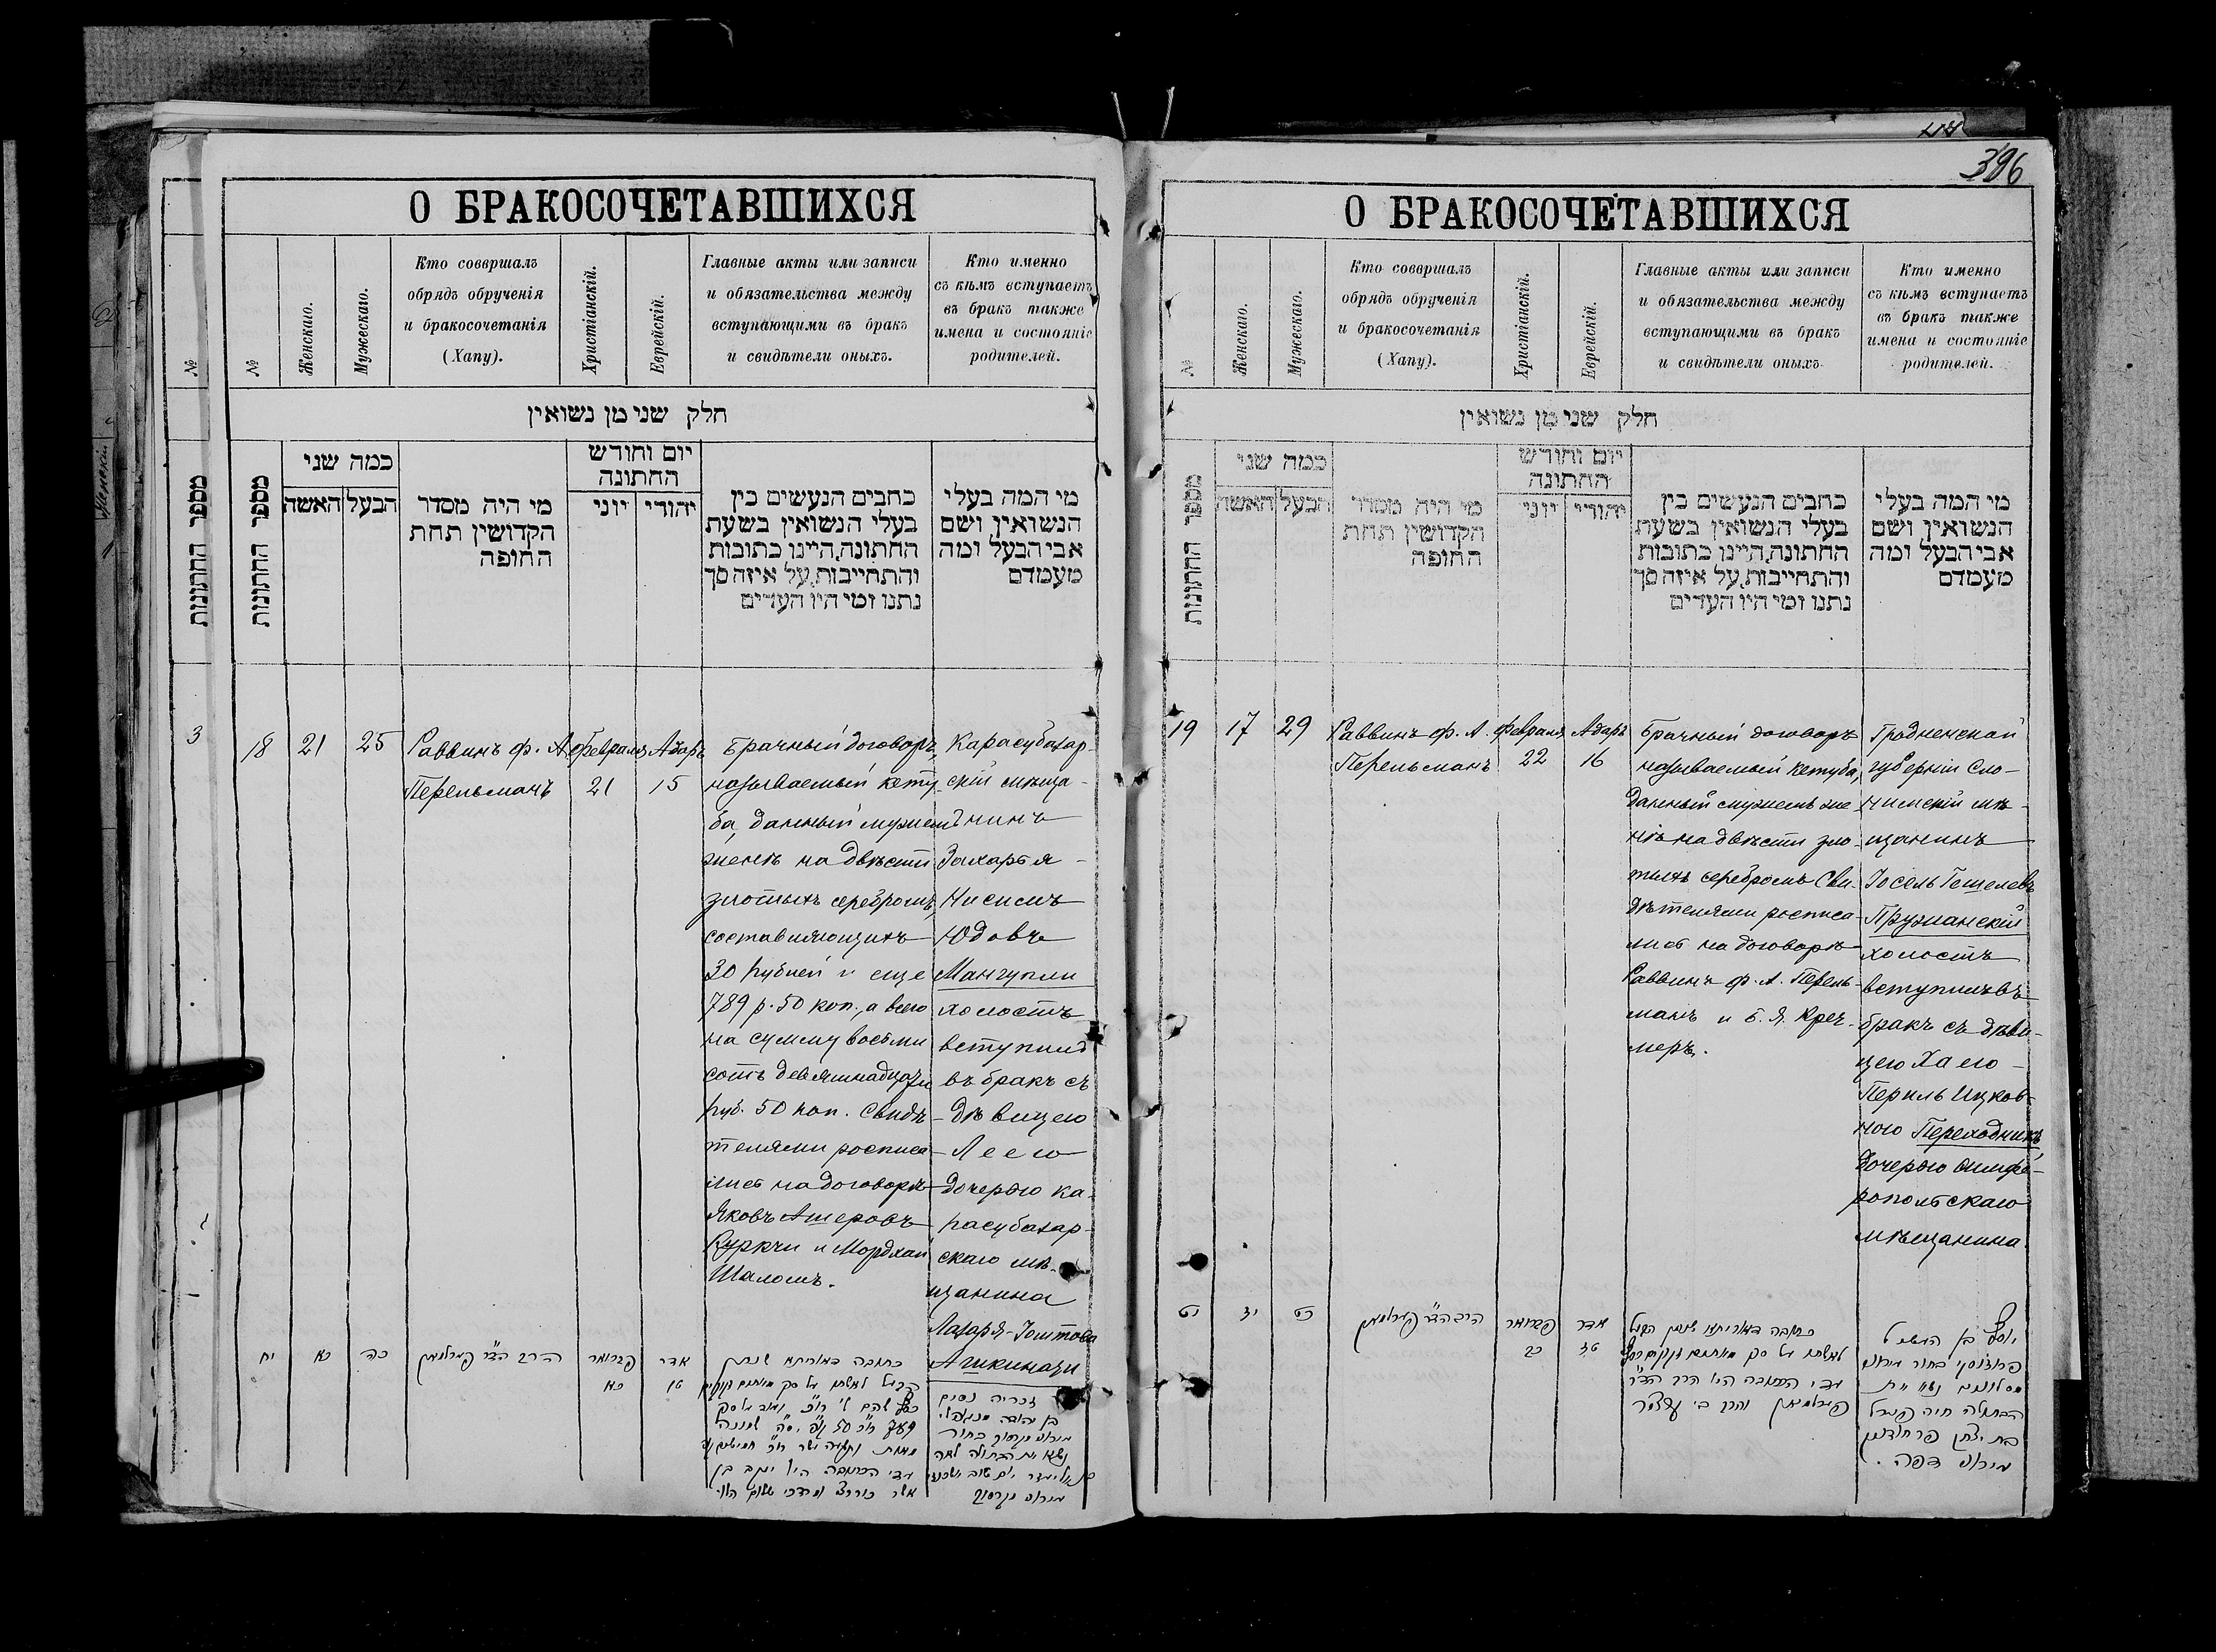 396
О БРАКОСОЧЕТАВШИХСЯ
№
№
Женскаго.
Мужескаго.
Кто совершалъ
обрядъ обрученія
и бракосочетанія
(Хапу).
Христіанскій.
Еврейскій.
Главные акты или записи
и обязательства между
вступающими въ бракъ
и свидѣтели оныхъ.
Кто именно
съ кѣмъ вступаетъ
въ бракъ также
имена и состояніе
родителей.
חלק שני מן נשואין
מספר החתונות
מספר החתונות
כמה שני
האשה
הבעל
מי היה מסדר
הקדושין תחת
החופה
יום וחודש
החתונה
יוני
יהודי
כתבים הנעשים בין
בעלי הנשואין בשעת
החתונה, היינו כתובות
והתחייבות, על איזה סך
נתנו ומי היו העדים
מי המה בעלי
הנשואין ושם
אבי הבעל ומה
מעמדם
3
18
21
25
Раввинъ Ф. А.
Перельманъ
Февраля
21
Адаръ
15
Брачный договоръ,
называемый кету-
ба, данный мужем
женѣ на двѣсти
злотыхъ серебромъ,
составляющихъ
30 рублей и еще
789 р. 50 коп., а всего
на сумму восемь
сотъ девятнадцать
руб. 50 коп. Свидѣ-
телями росписа-
лись на договорѣ
Яковъ Ашеровъ
Куркчи и Мордхай
Шаломъ.
Карасубазар-
скій мѣща-
нинъ
Захарья-
Нисимъ
Юдовъ
Мангупли
холостъ
вступилъ
въ бракъ съ
дѣвицею
Леею
дочерью ка-
расубазар-
скаго мѣ-
щанина
Лазаря-Іоштова
Ашкинази
יח
כא
כה
הרב הד״ר פערלמאן
פברואר
כא
אדר
טו
О БРАКОСОЧЕТАВШИХСЯ
№
Женскаго.
Мужескаго.
Кто совершалъ
обрядъ обрученія
и бракосочетанія
(Хапу).
Христіанскій.
Еврейскій.
Главные акты или записи
и обязательства между
вступающими въ бракъ
и свидѣтели оныхъ.
Кто именно
съ кѣмъ вступаетъ
въ бракъ также
имена и состояніе
родителей.
חלק שני מן נשואין
מספר החתונות
כמה שני
האשה
הבעל
מי היה מסדר
הקדושין תחת
החופה
יום וחודש
החתונה
יוני
יהודי
כתבים הנעשים בין
בעלי הנשואין בשעת
החתונה, היינו כתובות
והתחייבות, על איזה סך
נתנו ומי היו העדים
מי המה בעלי
הנשואין ושם
אבי הבעל ומה
מעמדם
19
17
29
Раввинъ Ф. А.
Перельманъ
Февраля
22
Адаръ
16
Брачный договоръ
называемый кетуба,
данный мужемъ же-
нѣ на двѣсти зло-
тыхъ серебромъ Сви-
дѣтелями росписа-
лись на договорѣ
Раввинъ Ф. А. Перель-
манъ и Б. Я. Креч-
меръ.
Гродненской
губерніи Сло-
нимскій мѣ-
щанинъ
Іосель Гешелевъ
Пружанскій
холостъ
вступилъ въ
бракъ съ дѣви-
цею Хаею-
Перль Ицков-
ною Переходникъ
дочерью Симфе-
ропольскаго
мѣщанина.
יט
יז
כט
הרב הד״ר פערלמאן
פברואר
כב
אדר
טז